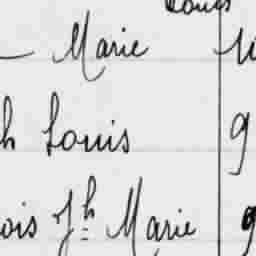 Louis
— Marie
h Louis 9
ois Jh Marie 9